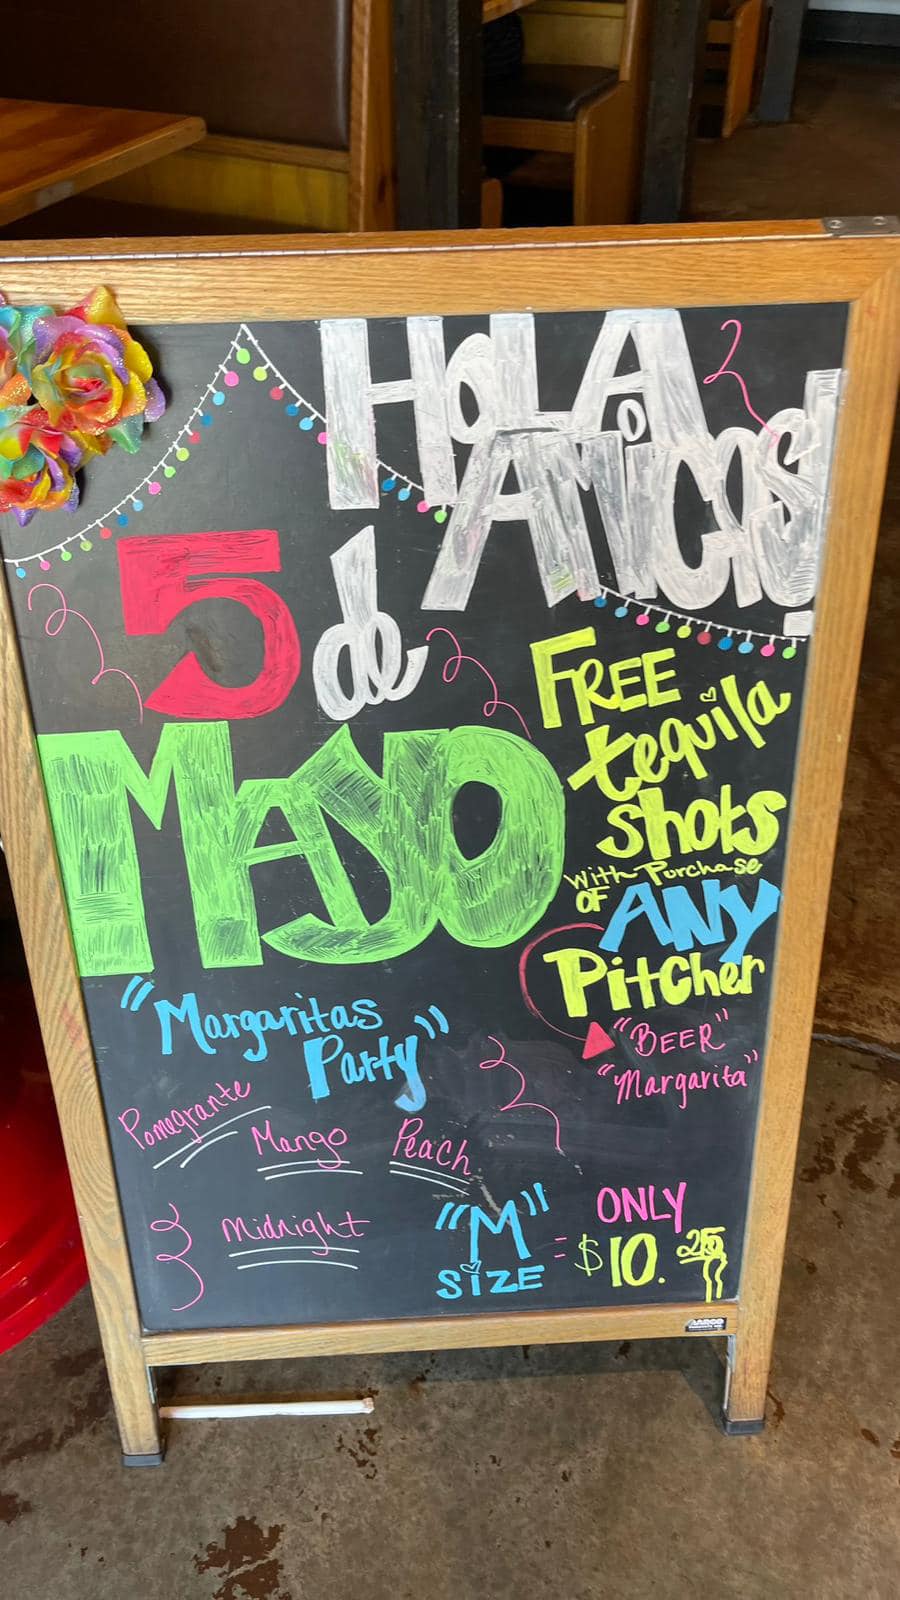 HoLA
AMiCOS!
5 de
MAYO
FREE
tequila
shots
with Purchase
OF ANY
Pitcher
"BEER"
"Margarita"
"Margaritas
Party"
Pomegrante
Mango
Peach
Midnight
"M"
SiZE
= ONLY
$10.25
AARCO